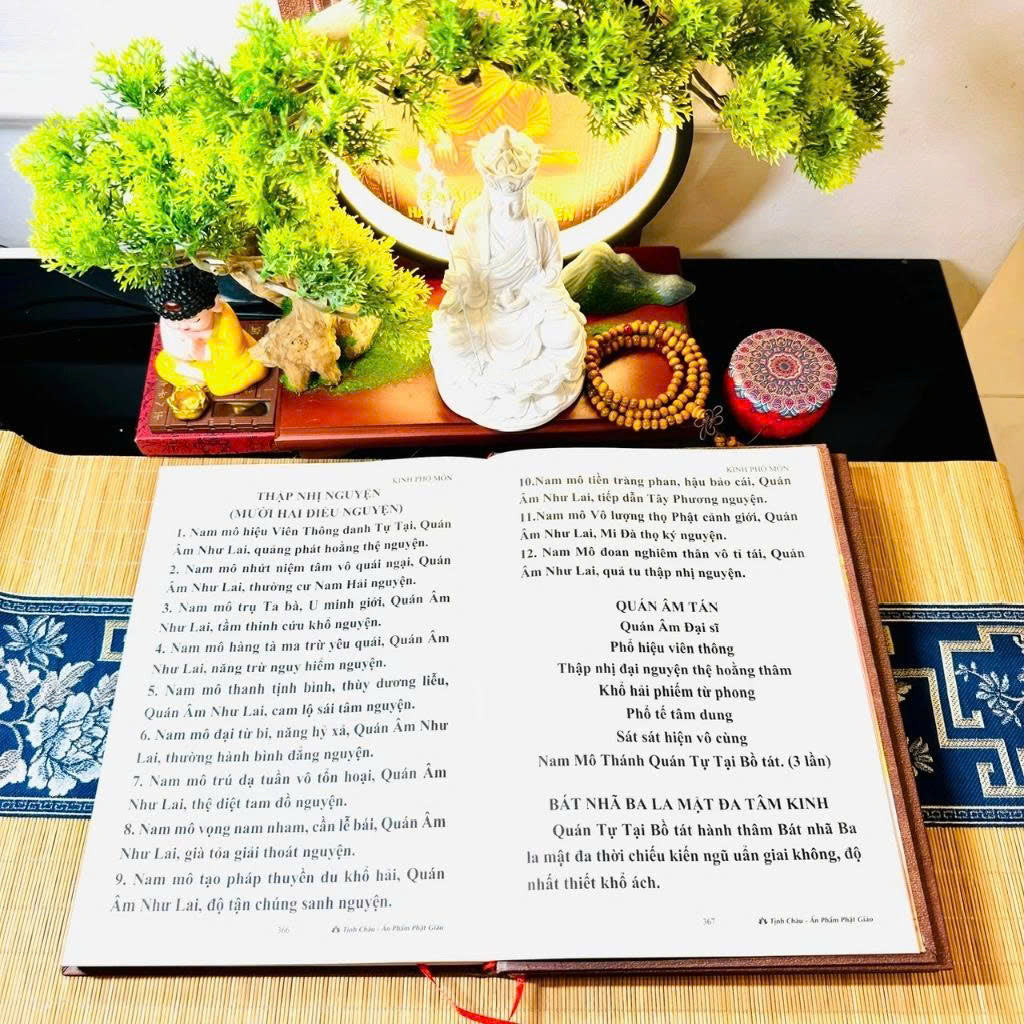 KINH PHỔ MÔN
THẬP NHỊ NGUYỆN
(MƯỜI HAI ĐIỀU NGUYỆN)
1. Nam mô hiệu Viên Thông danh Tự Tại, Quán
Âm Như Lai, quảng phát hoằng thệ nguyện.
2. Nam mô nhứt niệm tâm vô quái ngại, Quán
Âm Như Lai, thường cư Nam Hải nguyện.
3. Nam mô trụ Ta bà, U minh giới, Quán Âm
Như Lai, tầm thinh cứu khổ nguyện.
4. Nam mô hàng tà ma trừ yêu quái, Quán Âm
Như Lai, năng trừ nguy hiểm nguyện.
5. Nam mô thanh tịnh bình, thùy dương liễu,
Quán Âm Như Lai, cam lộ sái tâm nguyện.
6. Nam mô đại từ bi, năng hỷ xả, Quán Âm Như
Lai, thường hành bình đẳng nguyện.
7. Nam mô trú dạ tuần vô tổn hoại, Quán Âm
Như Lai, thệ diệt tam đồ nguyện.
8. Nam mô vọng nam nham, cần lễ bái, Quán Âm
Như Lai, già tỏa giải thoát nguyện.
9. Nam mô tạo pháp thuyền du khổ hải, Quán
Âm Như Lai, độ tận chúng sanh nguyện.
366
Tịnh Châu - Ấn Phẩm Phật Giáo
KINH PHỔ MÔN
10.Nam mô tiền tràng phan, hậu bảo cái, Quán
Âm Như Lai, tiếp dẫn Tây Phương nguyện.
11.Nam mô Vô lượng thọ Phật cảnh giới, Quán
Âm Như Lai, Mi Đà thọ ký nguyện.
12. Nam Mô đoan nghiêm thân vô tỉ tái, Quán
Âm Như Lai, quả tu thập nhị nguyện.
QUÁN ÂM TÁN
Quán Âm Đại sĩ
Phổ hiệu viên thông
Thập nhị đại nguyện thệ hoằng thâm
Khổ hải phiếm từ phong
Phổ tế tâm dung
Sát sát hiện vô cùng
Nam Mô Thánh Quán Tự Tại Bồ tát. (3 lần)
BÁT NHÃ BA LA MẬT ĐA TÂM KINH
Quán Tự Tại Bồ tát hành thâm Bát nhã Ba
la mật đa thời chiếu kiến ngũ uẩn giai không, độ
nhất thiết khổ ách.
367
Tịnh Châu - Ấn Phẩm Phật Giáo